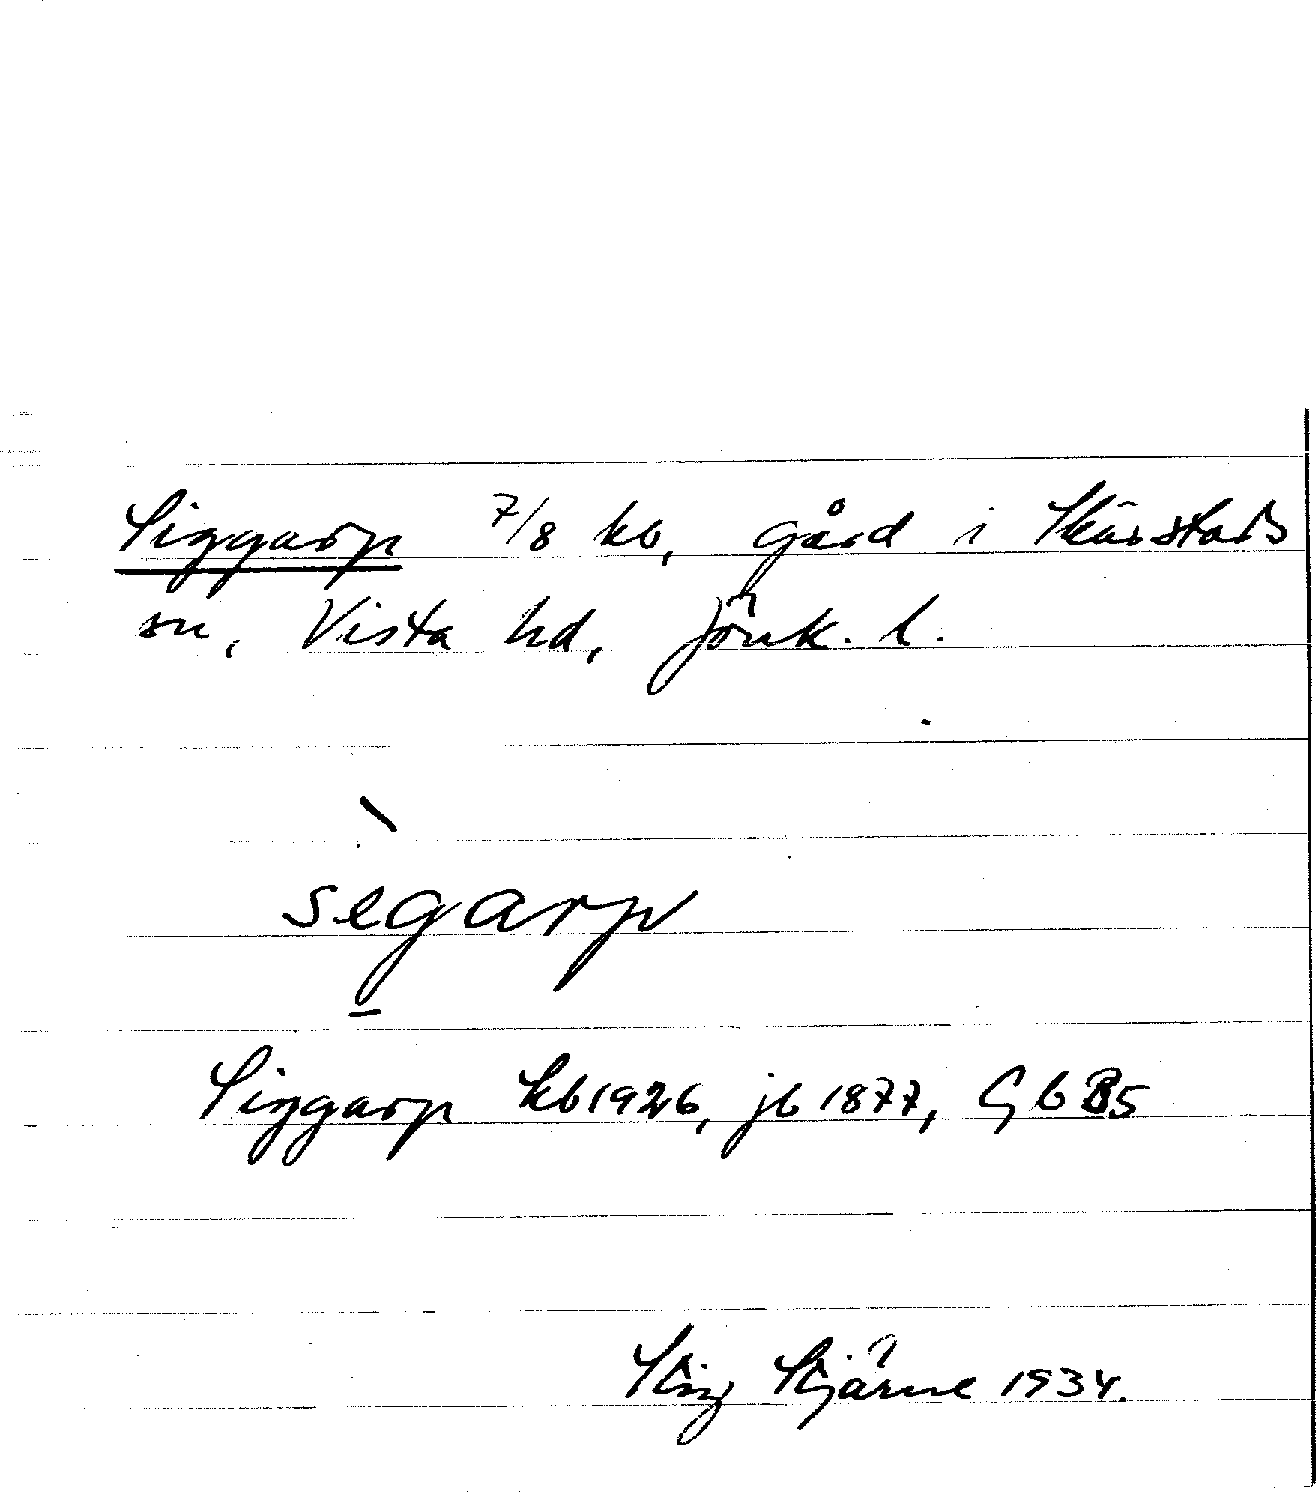 Siggarp 7/8 kb, gård i Skärstads
sn, Vista hd, Jönk. l.
segarp
Siggarp kb 1926, jb 1877, Gb B5
Stig Stjärne 1934.